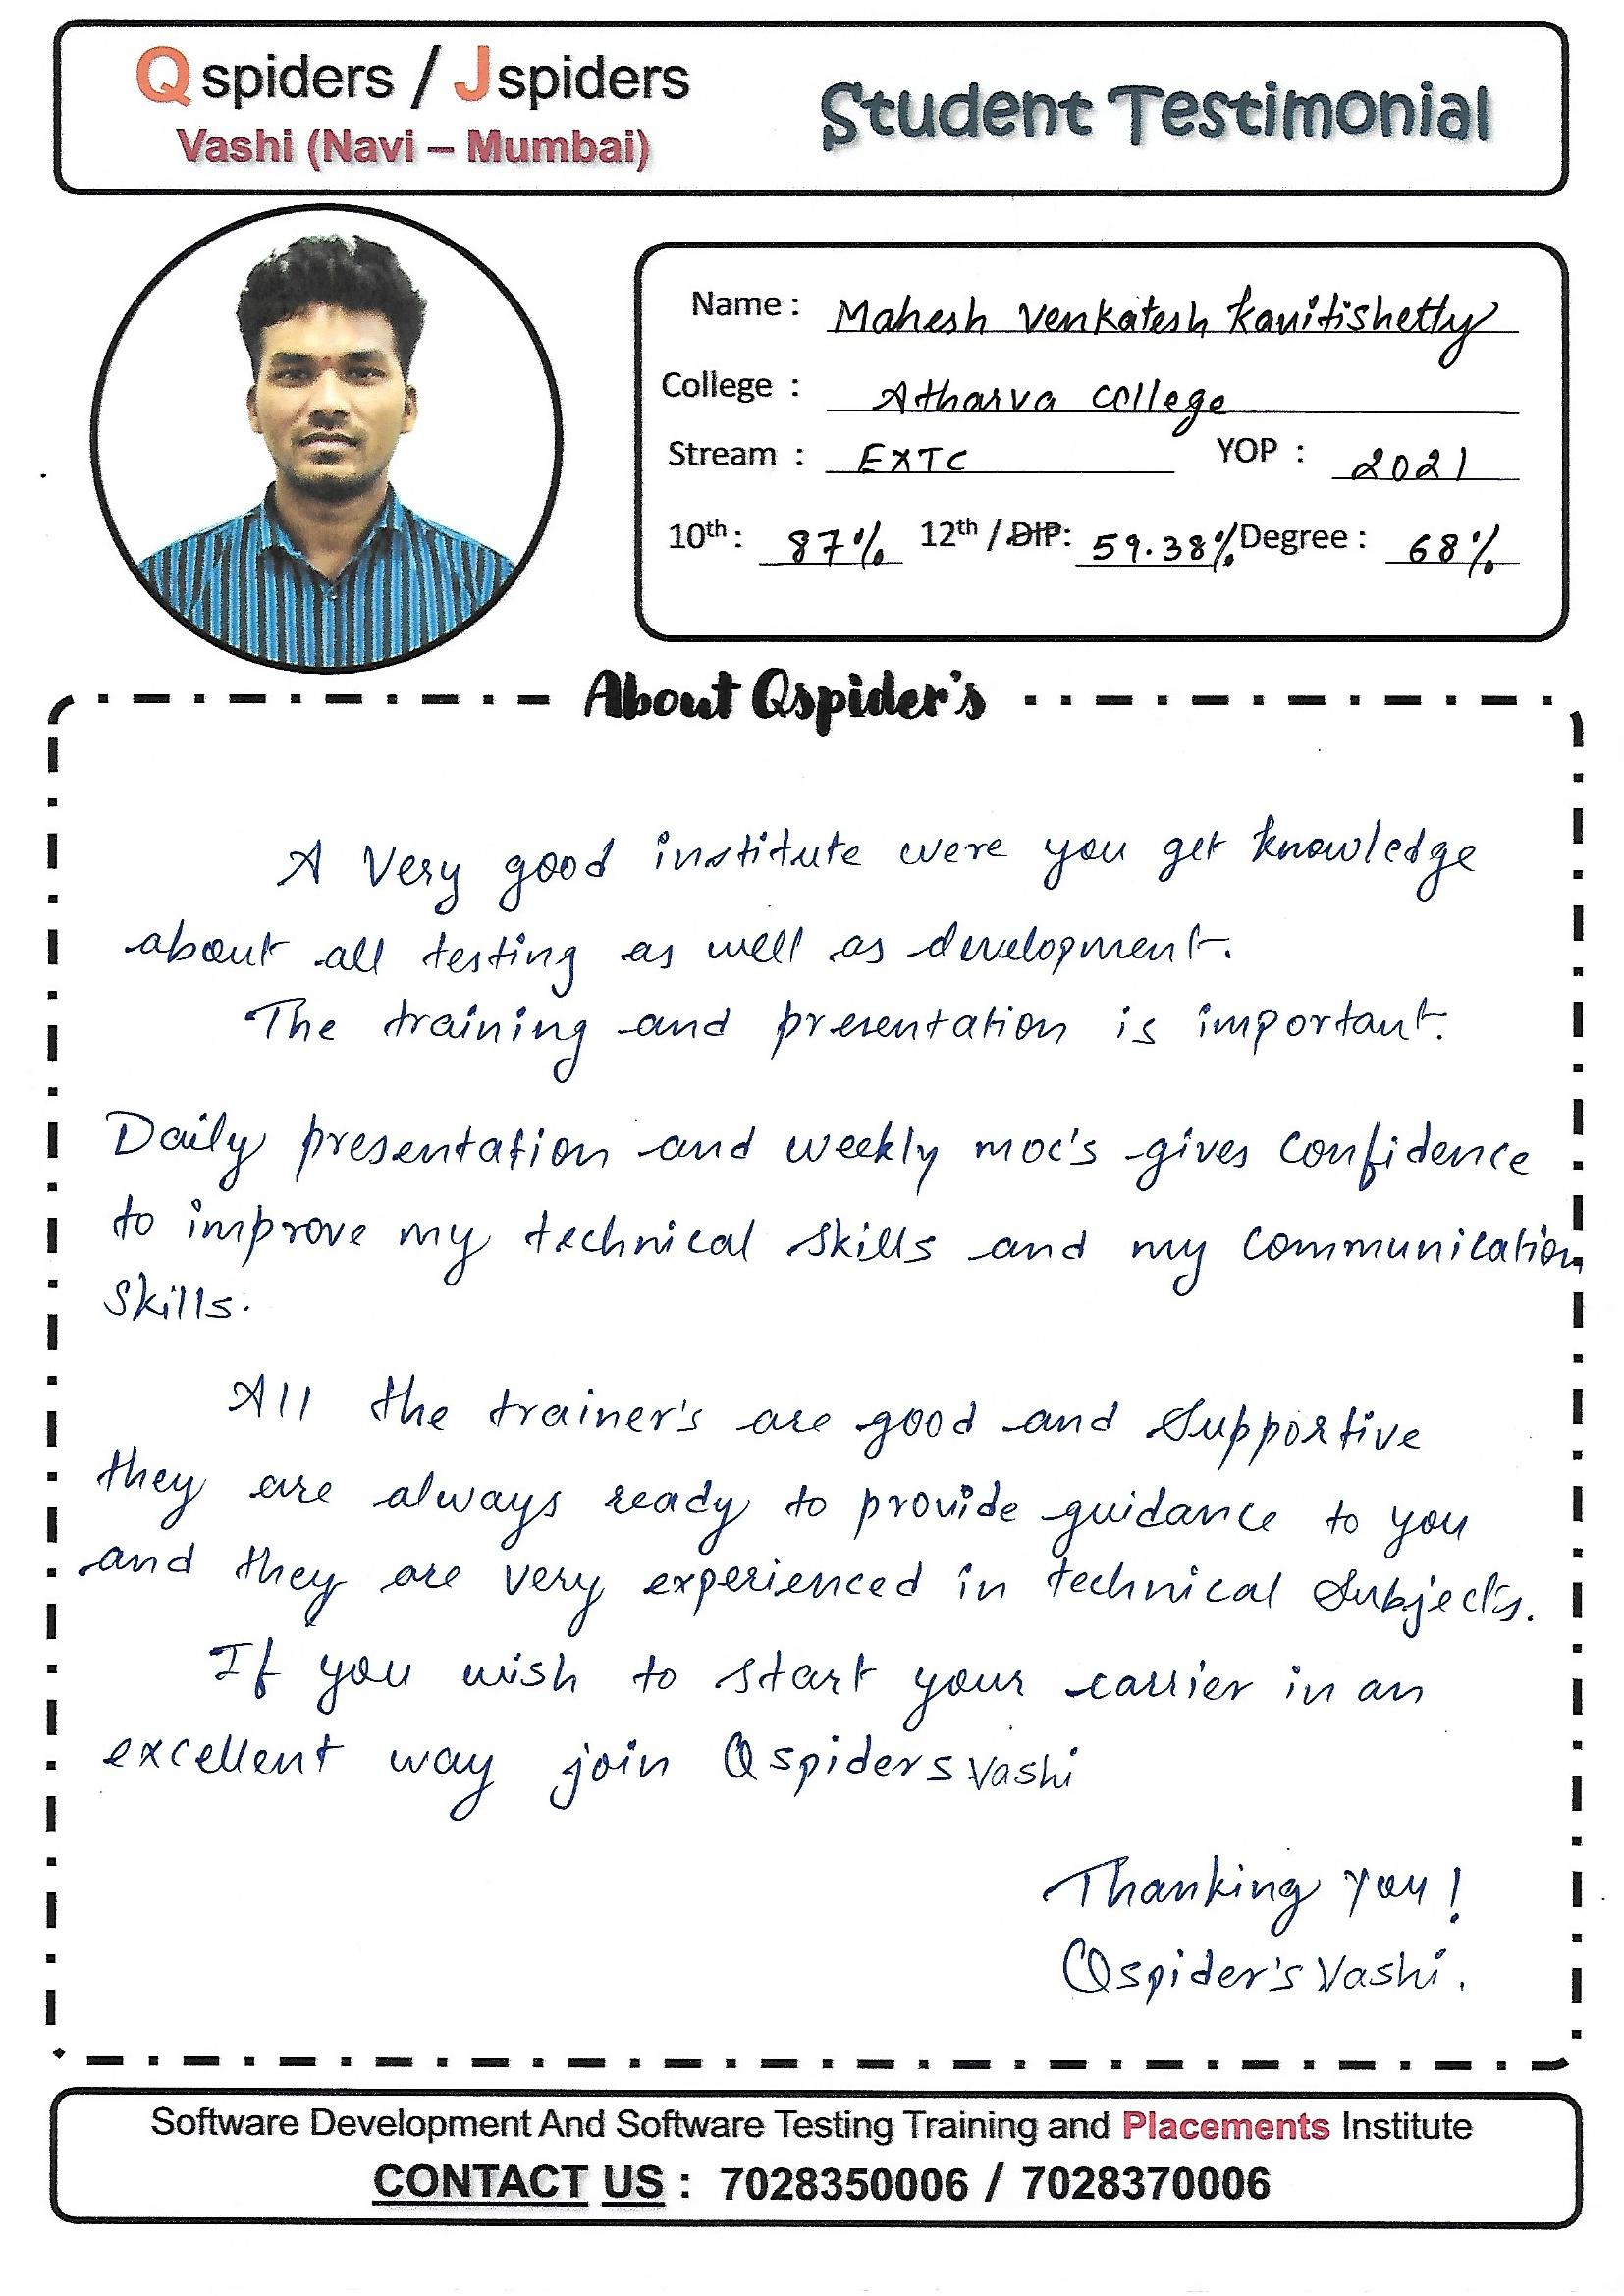 Qspiders / Jspiders
Vashi (Navi – Mumbai)
Student Testimonial
Name : Mahesh Venkatesh Kavitishetty
College : Atharva College
Stream : EXTC YOP : 2021
10th : 87% 12th / DIP: 59.38% Degree : 68%
About Qspider's
A Very good institute were you get knowledge
about all testing as well as development.
The training and presentation is important.
Daily presentation and weekly moc's gives confidence
to improve my technical skills and my communication
Skills.
All the trainer's are good and Supportive
they are always ready to provide guidance to you
and they are very experienced in technical Subject's.
If you wish to start your carrier in an
excellent way join Qspiders Vashi
Thanking you!
Qspider's Vashi.
Software Development And Software Testing Training and Placements Institute
CONTACT US : 7028350006 / 7028370006